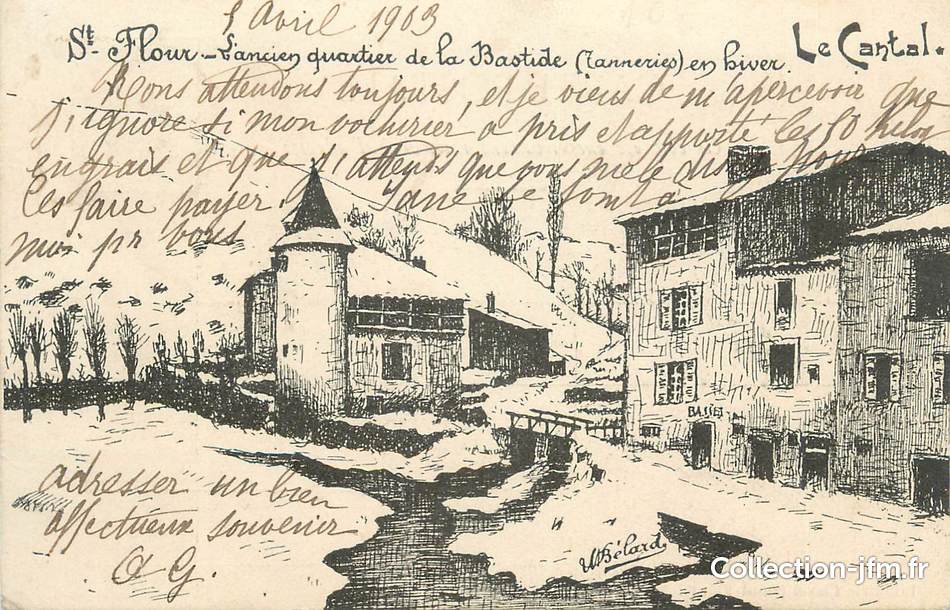 5 Avril 1903
St. Flour. - L'ancien quartier de la Bastide (Tanneries) en hiver. Le Cantal.
Nous attendons toujours, et je viens de m'apercevoir que
j'ignore si mon voiturier a pris et apporté les 50 kilos
engrais et que j'attends que vous me le disiez pour
les faire payer. Jane se joint à
moi pr vous
adresser un bien
affectueux souvenir
A G.
BASSET
Bélard
Collection-jfm.fr